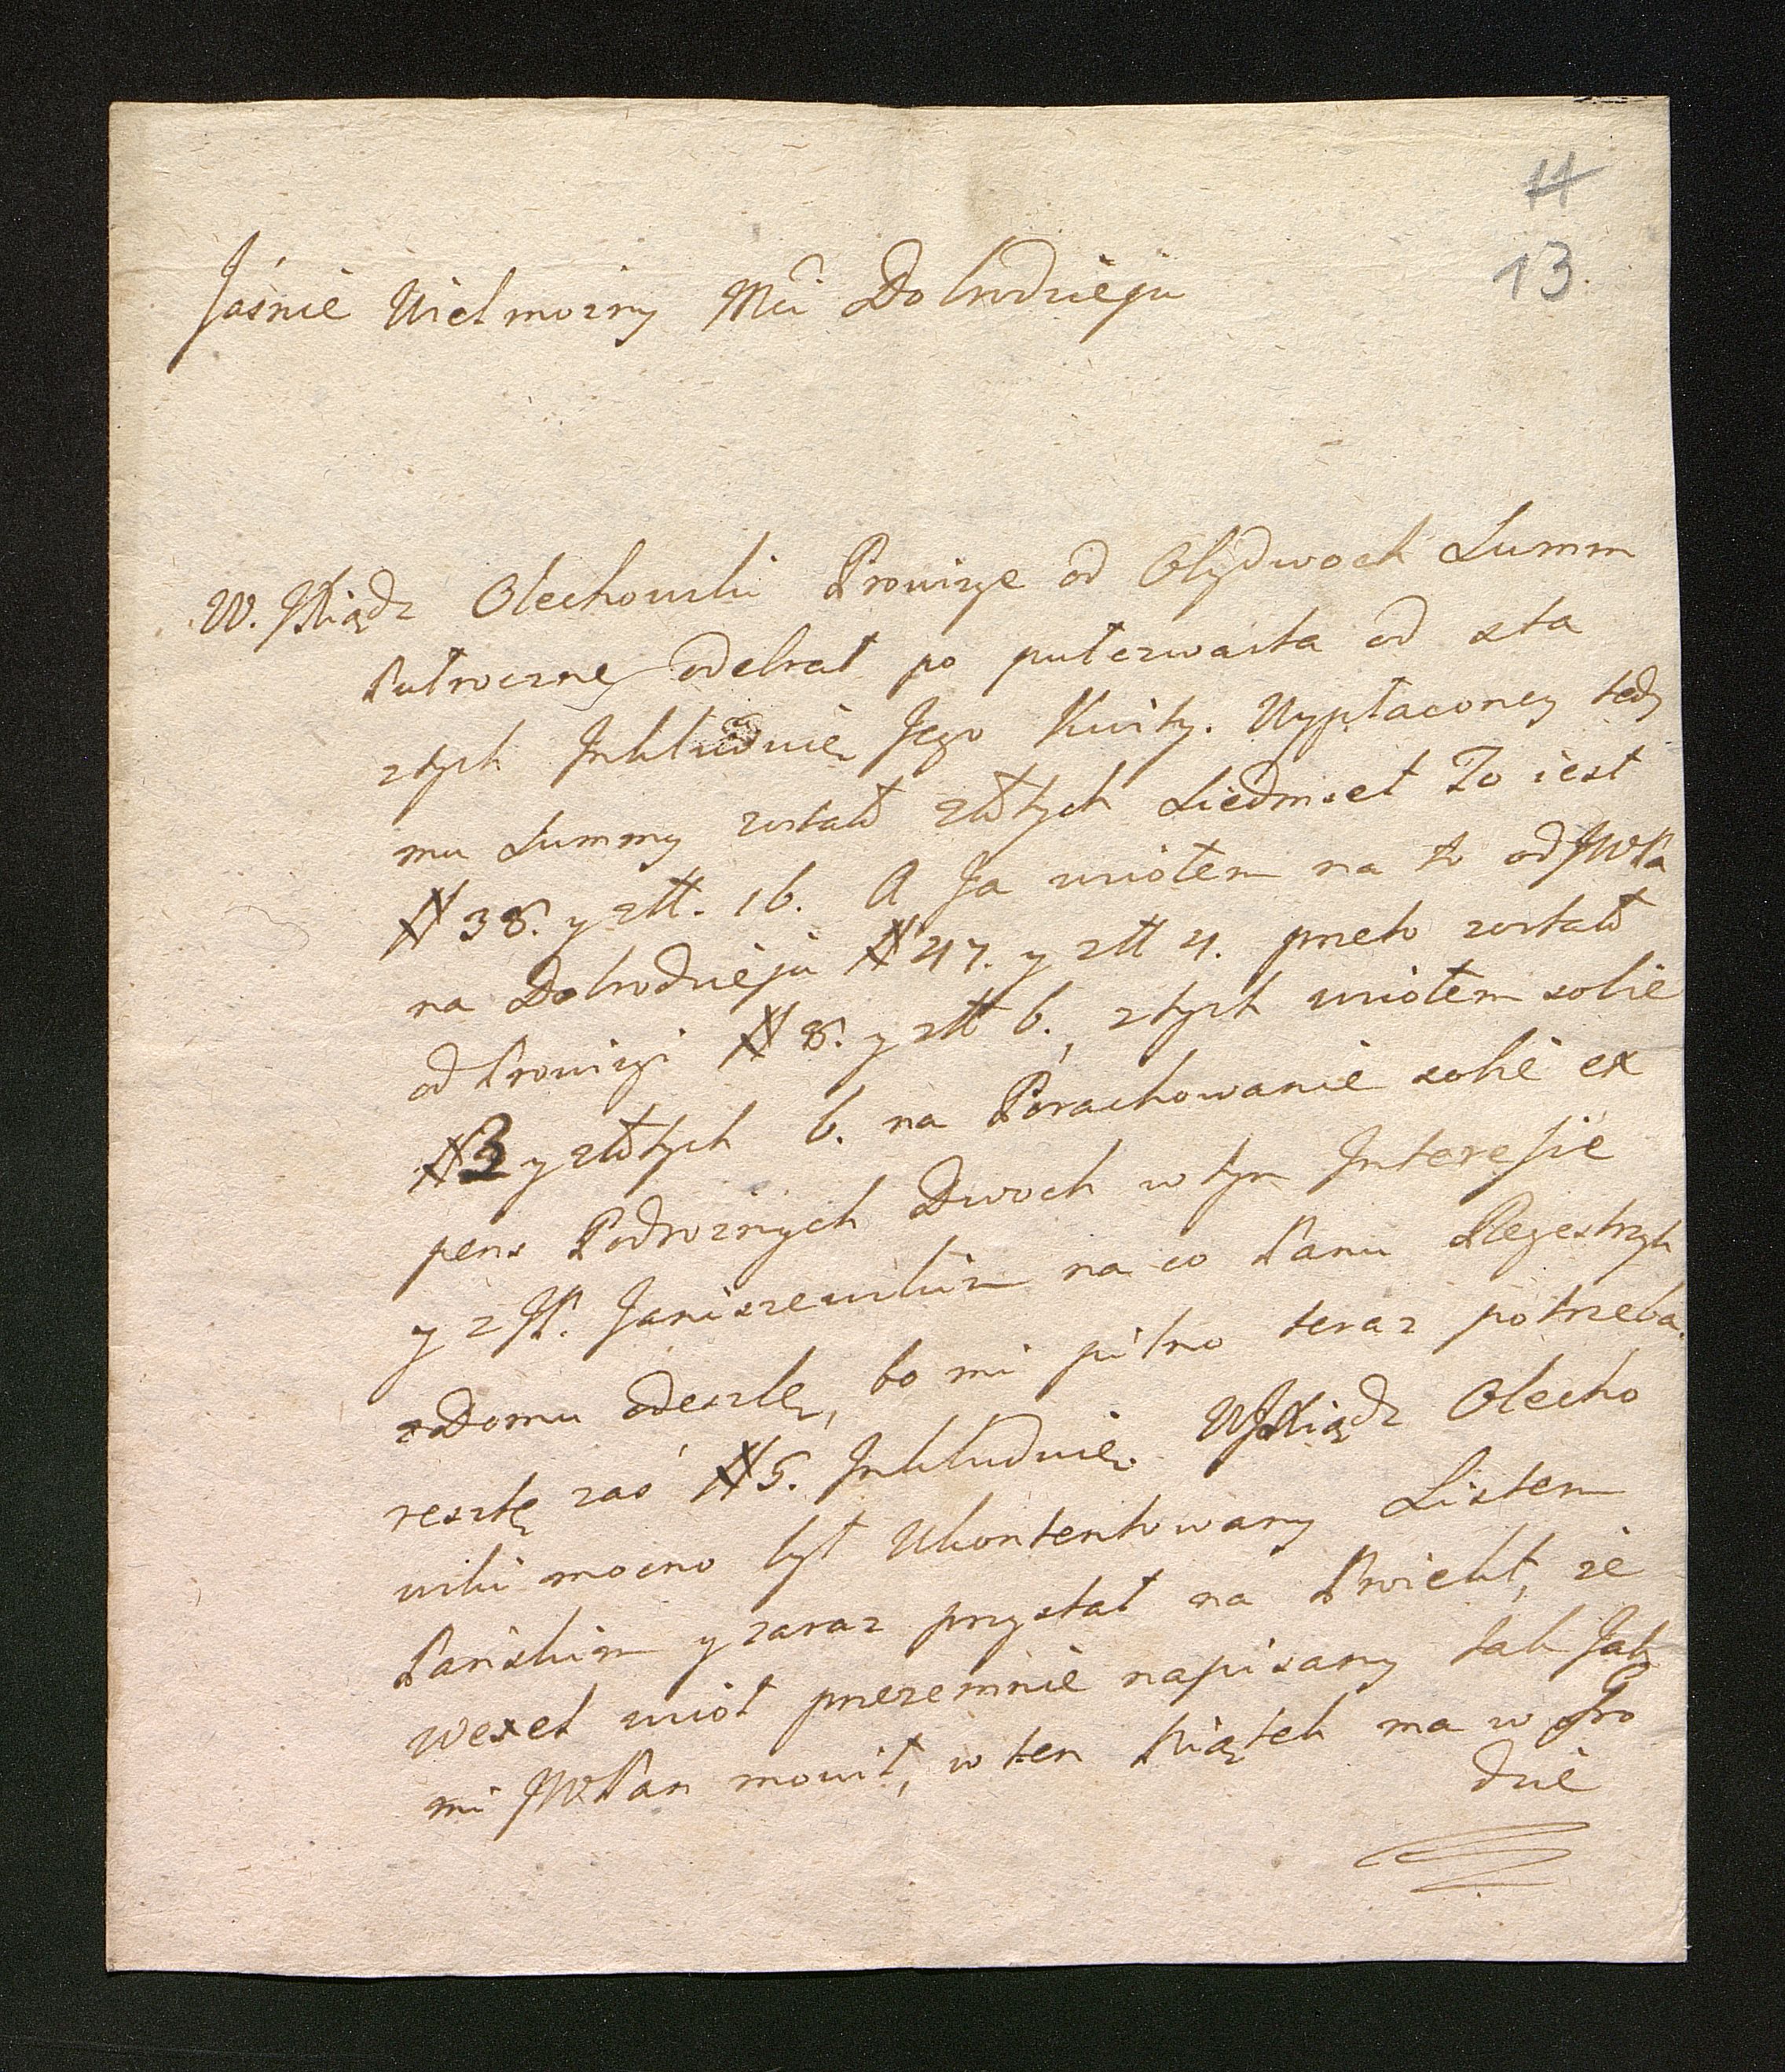 11
13.
Jaśnie Wielmożny Mći Dobrodzieju
W. JXiądz Olechowski Prowizye od Obydwoch Summ
Pułroczne odebrał po pułczwarta od sta
z tych Inkluduię Jego Kwity. Wypłaconey tedy
mu Summy został złłotych Siedmset To iest
# 38. y złł. 16. A Ja wziołem na to od JWPa
na Dobrodzieja # 47. y złł 4. przeto zostało
od Prowizyi # 8. y złł 6., z tych wziołem sobie
# 3 y złłotych 6. na Porachowanie sobie ex
pens Podrożnych Dwoch w tym Interesie
y z JP. Janiszewskim na co Panu Regestrzyk
z Domu odeszlę, bo mi pilno teraz potrzeba.
resztę zaś # 5. Inkluduię. WJXiądz Olecho
wski mocno był Ukontentowany Listem
Pańskim y zaraz przystał na Proiekt, że
wexel wziol przezemnie napisany tak Jak
mi JWPan mowił, w ten Piątek ma w Gro
dzie